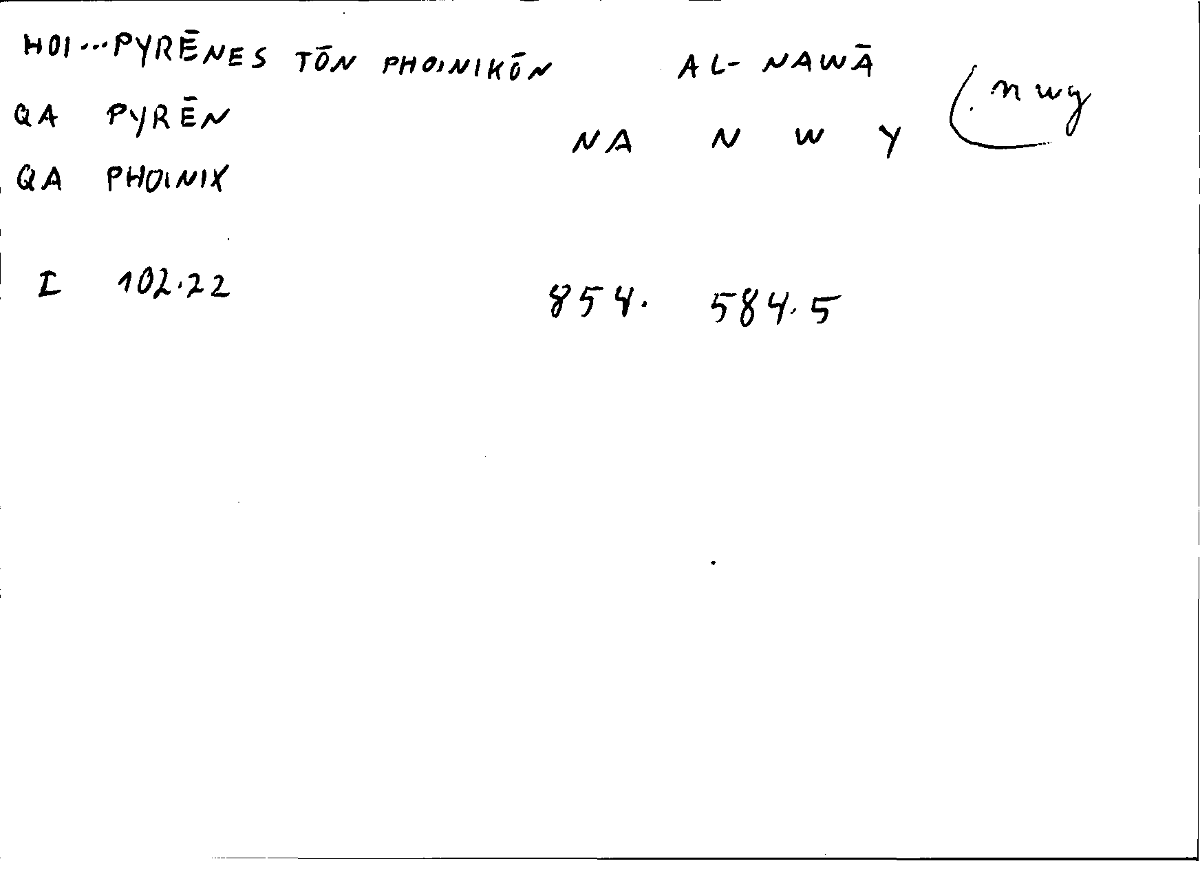 HOI...PYRĒNES TŌN PHOINIKŌN AL-NAWĀ
QA PYRĒN
NA N W Y (nwy
QA PHOINIX
I 102.22
854. 584.5